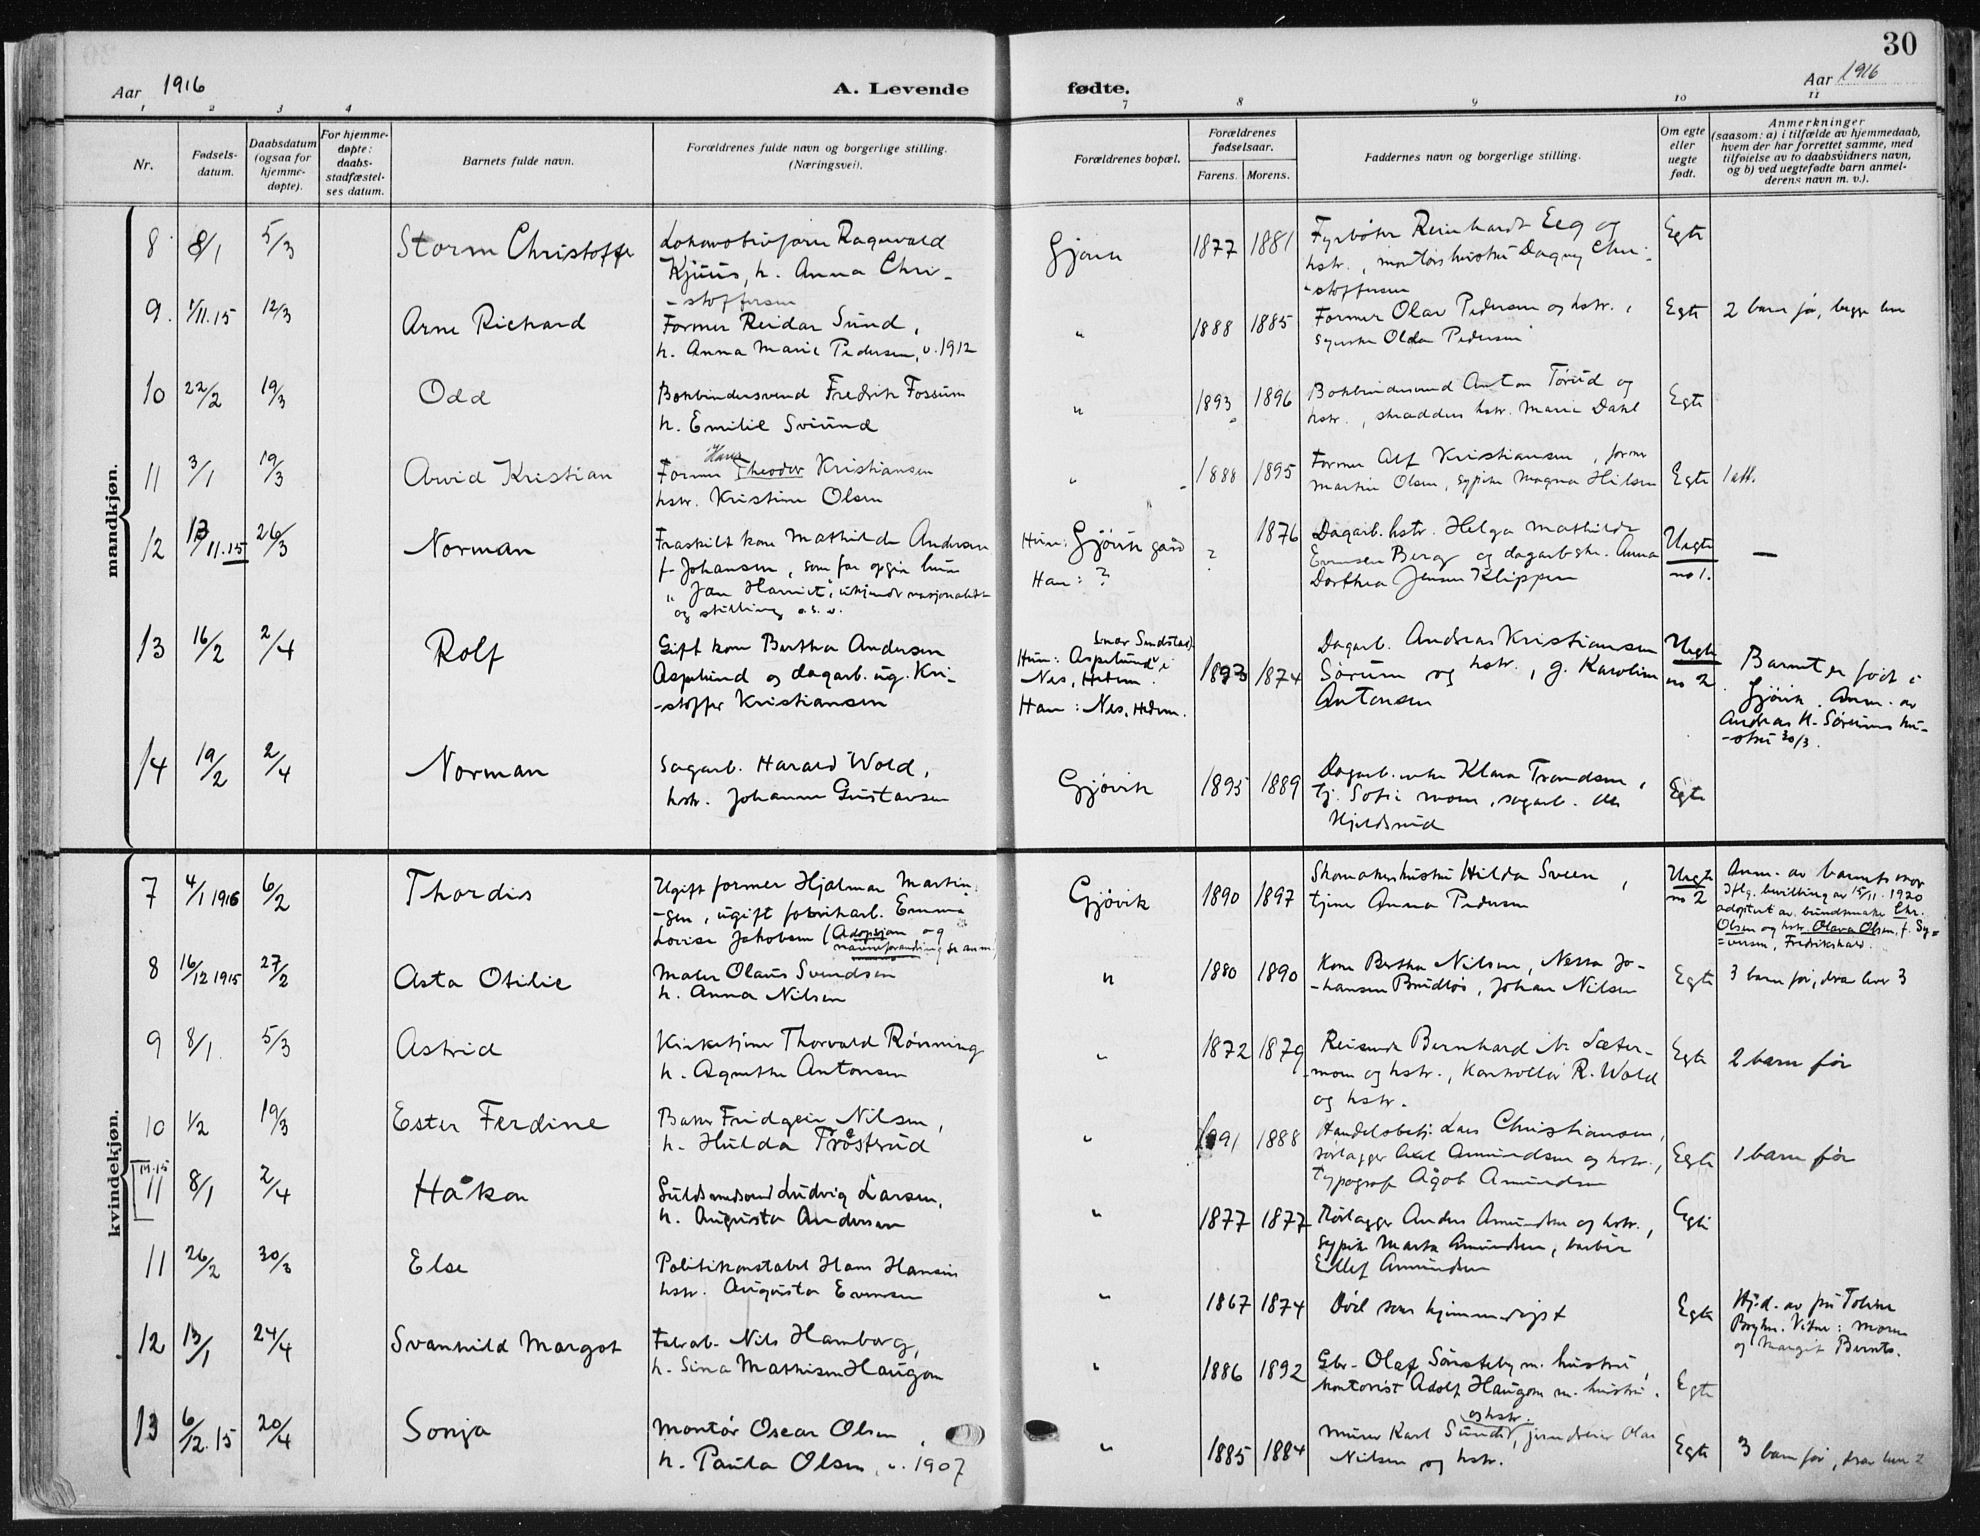 30
Aar 1916
A. Levende
fødte.
Aar 1916
1 2 3 4
7 8 9 10 11
Nr.
Fødsels-
datum.
Daabsdatum
(ogsaa for
hjemme-
døpte).
For hjemme-
døpte:
daabs-
stadfæstel-
ses datum.
Barnets fulde navn.
Forældrenes fulde navn og borgerlige stilling.
(Næringsvei).
Forældrenes bopæl.
Forældrenes
fødselsaar.
Farens. Morens.
Faddernes navn og borgerlige stilling.
Om egte
eller
uegte
født.
Anmerkninger
(saasom: a) i tilfælde av hjemmedaab,
hvem der har forrettet samme, med
tilføielse av to daabsvidners navn,
og b) ved uegtefødte barn anmel-
derens navn m. v.).
mandkjøn.
8 8/1 5/3 Storm Christoffer
Ragnvald
Kjuus, h. Anna Chri-
-stoffersen
Gjøvik 1877 1881
Fyrbøter Reinhardt Eeg og
hstr., montørs hustru Dagny Chri-
-stoffersen
Egte
9. 1/11.15 12/3 Arne Richard
Former Reidar Sund,
h. Anna Marie Pedersen, v. 1912
" 1888 1885
Former Olav Pedersen og hstr.,
Olda Pedersen
Egte 2 barn før, begge lever
10 22/2 19/3 Odd
Bokbindersvend Fredrik Fossum
h. Emilie Sviund
" 1893 1896
Bokbindersvend Anton Torud og
hstr., skrædders hstr. Marie Dahl
Egte
11 3/1 19/3 Arvid Kristian
Hans
Former Theodor Kristiansen
hstr. Kristine Olsen
" 1888 1895
Former Alf Kristiansen, former
Martin Olsen, sypike Magna Hilsen
Egte
12 13/11.15 26/3 Norman
Fraskilt kone Mathilde Andersen
f. Johansen, som far opgir hun
"Jan Harriet", ukjendt nasjonalitet
og stilling o.s.v.
Hun: Gjøvik gaard
Han: ?
? 1876
Dagarb. hstr. Helga Mathilde
Evensen Berg og dagarbske. Anna
Dorthea Jensen Klippen
Uegte
no 1. —
13 16/2 2/4 Rolf
Gift kone Berthe Andersen
Asplund og dagarb. ug. Kri-
-stoffer Kristiansen
Hun: Asplund i
Nes, Hedm.
Han: Nes, Hedm.
1893 1874
Dagarb. Andreas Kristiansen
Sørum og hstr., g. Karoline
Antonsen
Uegte
no 2
Barnet er født i
Gjøvik. Anm. av
Andreas K. Sørums hu-
-stru 30/3.
14 19/2 2/4 Norman
Sagarb. Harald Wold,
hstr. Johanne Gustavsen
Gjøvik 1895 1889
Dagarb. enke Klara Trondsen,
tj. Sofie Moen, sagarb.
Hjeldsrud
Egte
kvindekjøn.
7 4/1 1916 6/2 Thordis
Ugift former Hjalmar Martin-
-sen, ugift fabrikarb. Emma
Lovise Jakobsen (Adopsjon og
navneforandring se anm.)
Gjøvik 1890 1897
Skomakerhustru Hilda Sveen,
tjener Anna Pedersen
Uegte
no 2
Anm. av barnets mor
Iflg. bevilling av 15/11. 1920
adoptert av bundtmaker Chr.
Olsen og hstr. Olava Olsen, f. Sy-
=versen, Fredrikshald.
8 16/12 1915 27/2 Asta Otilie
Maler Olaus Svendsen
h. Anna Nilsen
" 1880 1890
Kone Bertha Nilsen, Jo-
-hansen Brudløs, Johan Nilsen
Egte 3 barn før, drav lever 3
9 8/1 5/3 Astrid
Kirketjener Thorvald Rønning
h. Agnethe Antonsen
" 1872 1879
Reisende Bernhard N. Sæter-
-moen og hstr., kontrollør R. Wold
og hstr.
Egte 2 barn før
10 1/2 19/3 Ester Ferdine
Baker Fridgeir Nilsen,
h. Hulda Trøstrud
" 1891 1888
Handelsbetj. Lars Christiansen,
rørlægger Axel Amundsen og hstr.,
typograf Ågot Amundsen
Egte 1 barn før
M. 15
11 8/1 2/4 Håkon
Guldsmedsvend Ludvig Larsen,
h. Augusta Andersen
" 1877 1877
Rørlægger Anders Amundsen og hstr.,
sypike Marta Amundsen, barber
Eilef Amundsen
Egte
11 26/2 30/3 Else
Politikonstabel Hans Hansen
hstr. Augusta Evensen
" 1867 1874
Død som hjemmedøpt
Egte
Hj.d. av fru Toline
Vitne: Moren
og Margit Bernts.
12 13/1 24/4 Svanhild Margot
Nils Hamborg,
h. Sina Mathisen Haugom
" 1886 1892
Gbr. Olaf Sørsteby m. hustru
kontorist Adolf Haugom m. hustru.
Egte
13 6/12.15 20/4 Sonja
Montør Oscar Olsen,
h. Paula Olsen, v. 1907
" 1885 1884
og hstr.
Murer Karl Sund, jerndreier Olav
Nilsen og hstr.
Egte 3 barn før, drav lever 2